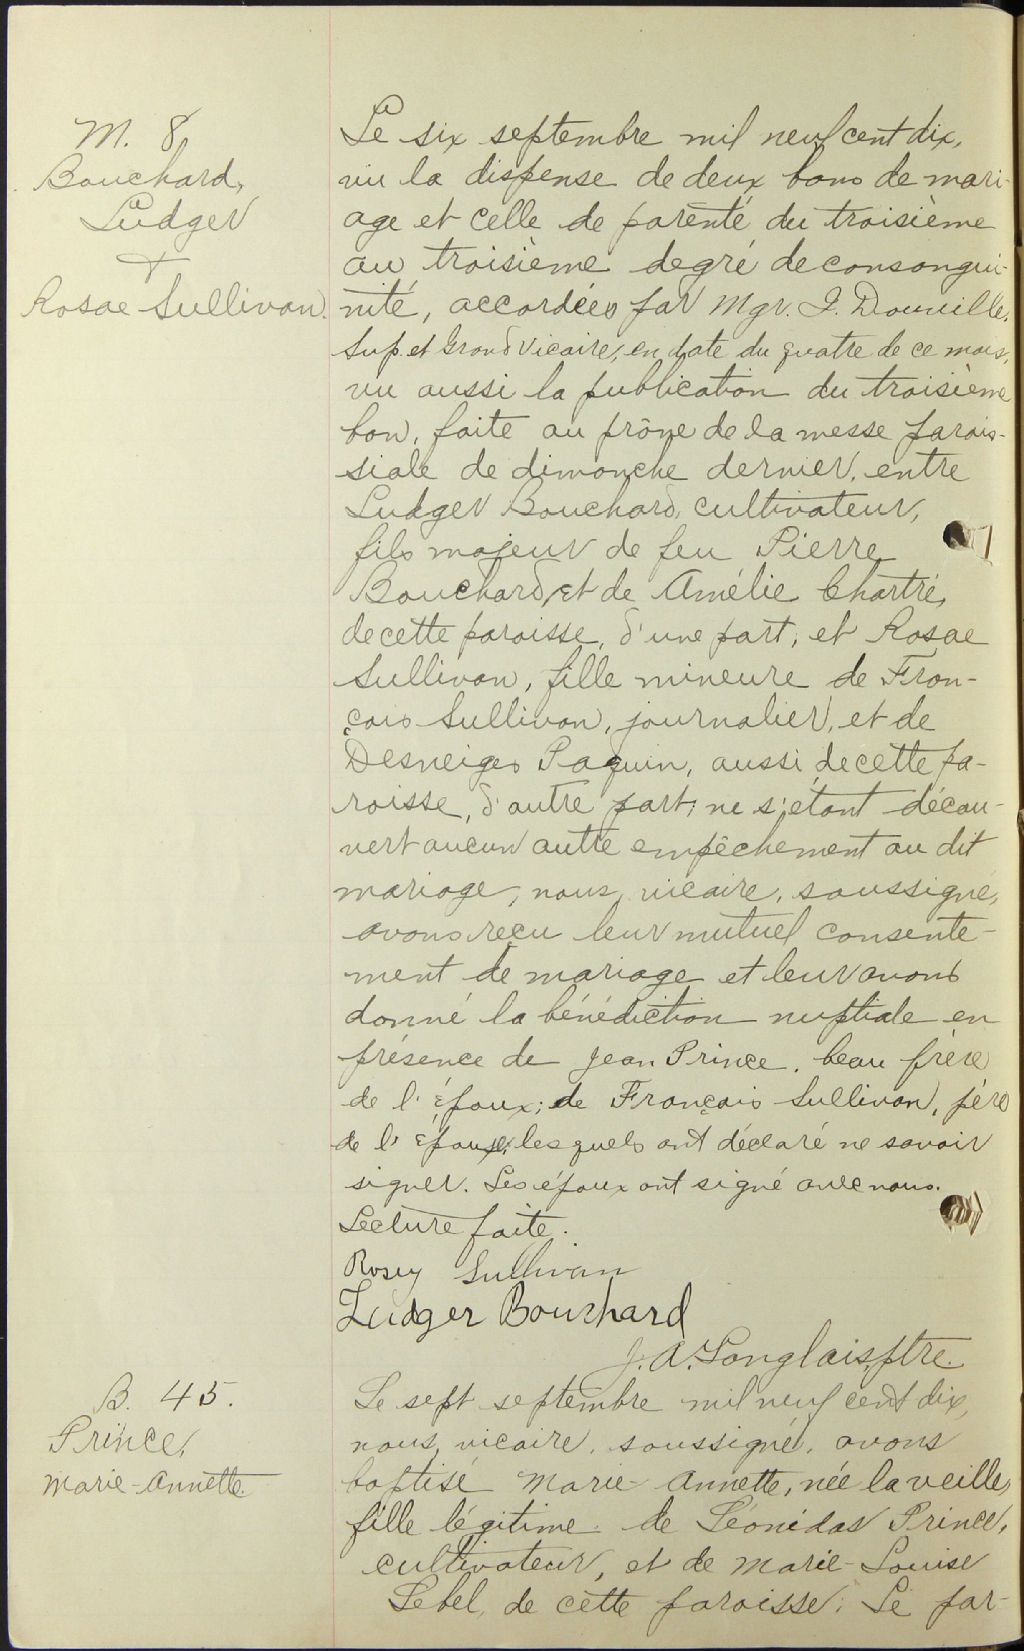 M. 8
Bouchard,
Ludger
+
Rosae Sullivan.
Le six septembre mil neuf cent dix,
vu la dispense de deux bans de mari-
age et celle de parenté du troisième
au troisième degré de consangui-
nité, accordées par Mgr. I. Douville,
Sup. et Grand Vicaire, en date du quatre de ce mois,
vu aussi la publication du troisième
ban, faite au prône de la messe parois-
siale de dimanche dernier, entre
Ludger Bouchard, cultivateur,
fils majeur de feu Pierre
Bouchard, et de Amélie Chartré,
de cette paroisse, d'une part, et Rosae
Sullivan, fille mineure de Fran-
çois Sullivan, journalier, et de
Desneiges Paquin, aussi de cette pa-
roisse, d'autre part; ne s'étant décou-
vert aucun autre empêchement au dit
mariage, nous, vicaire, soussigné,
avons reçu leur mutuel consente-
ment de mariage et leur avons
donné la bénédiction nuptiale en
présence de Jean Prince, beau frère
de l'époux; de François Sullivan, père
de l'épouse, lesquels ont déclaré ne savoir
signer. Les époux ont signé avec nous.
Lecture faite.
Rosey Sullivan
Ludger Bouchard
J. A. Langlais, ptre.
B. 45.
Prince,
Marie-Annette
Le sept septembre mil neuf cent dix,
nous, vicaire, soussigné, avons
baptisé Marie-Annette, née la veille,
fille légitime de Léonidas Prince,
cultivateur, et de Marie-Louise
Lebel, de cette paroisse. Le par-